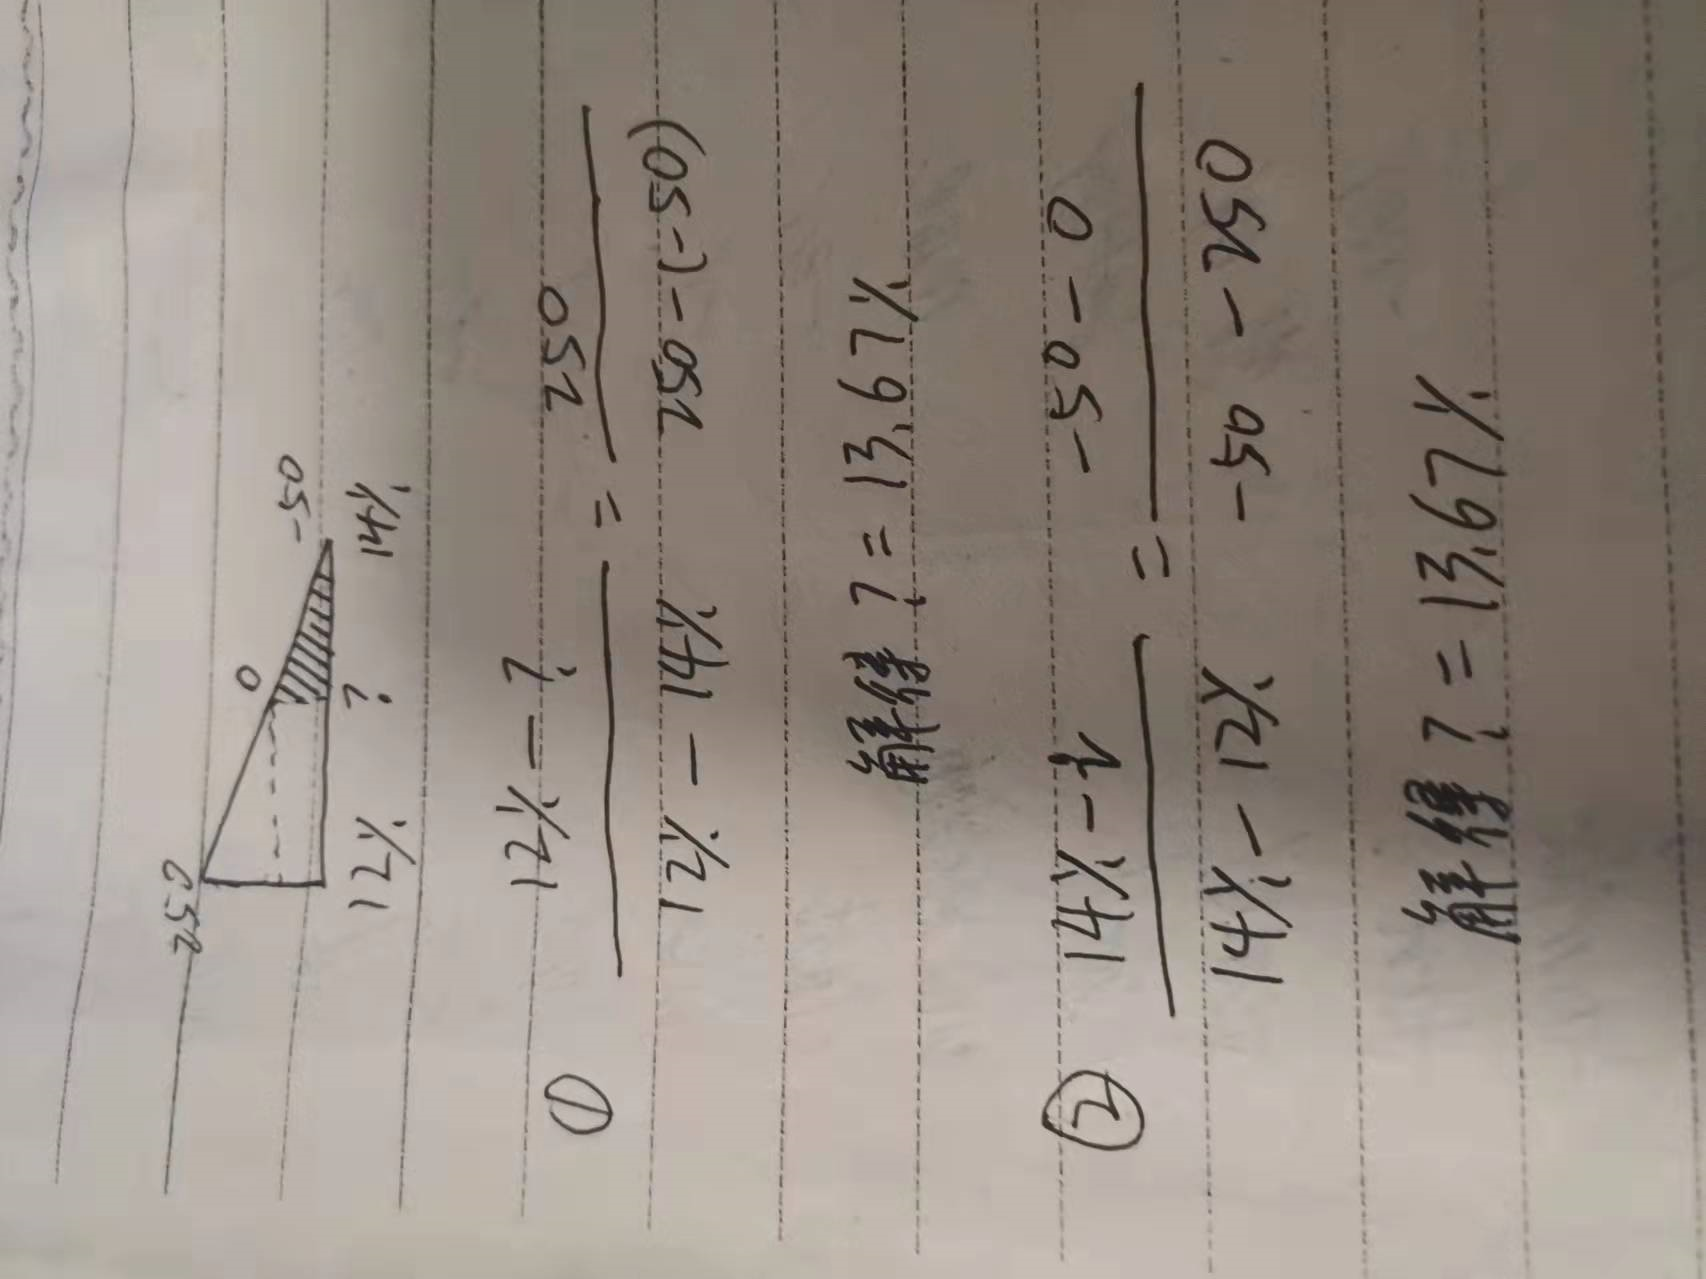 250
0
-50
12% ? 14%
① 12% - ? / 12% - 14% = 250 / 250 - (-50)
解得 ? = 13.67%
② 14% - ? / 14% - 12% = -50 - 0 / -50 - 250
解得 ? = 13.67%